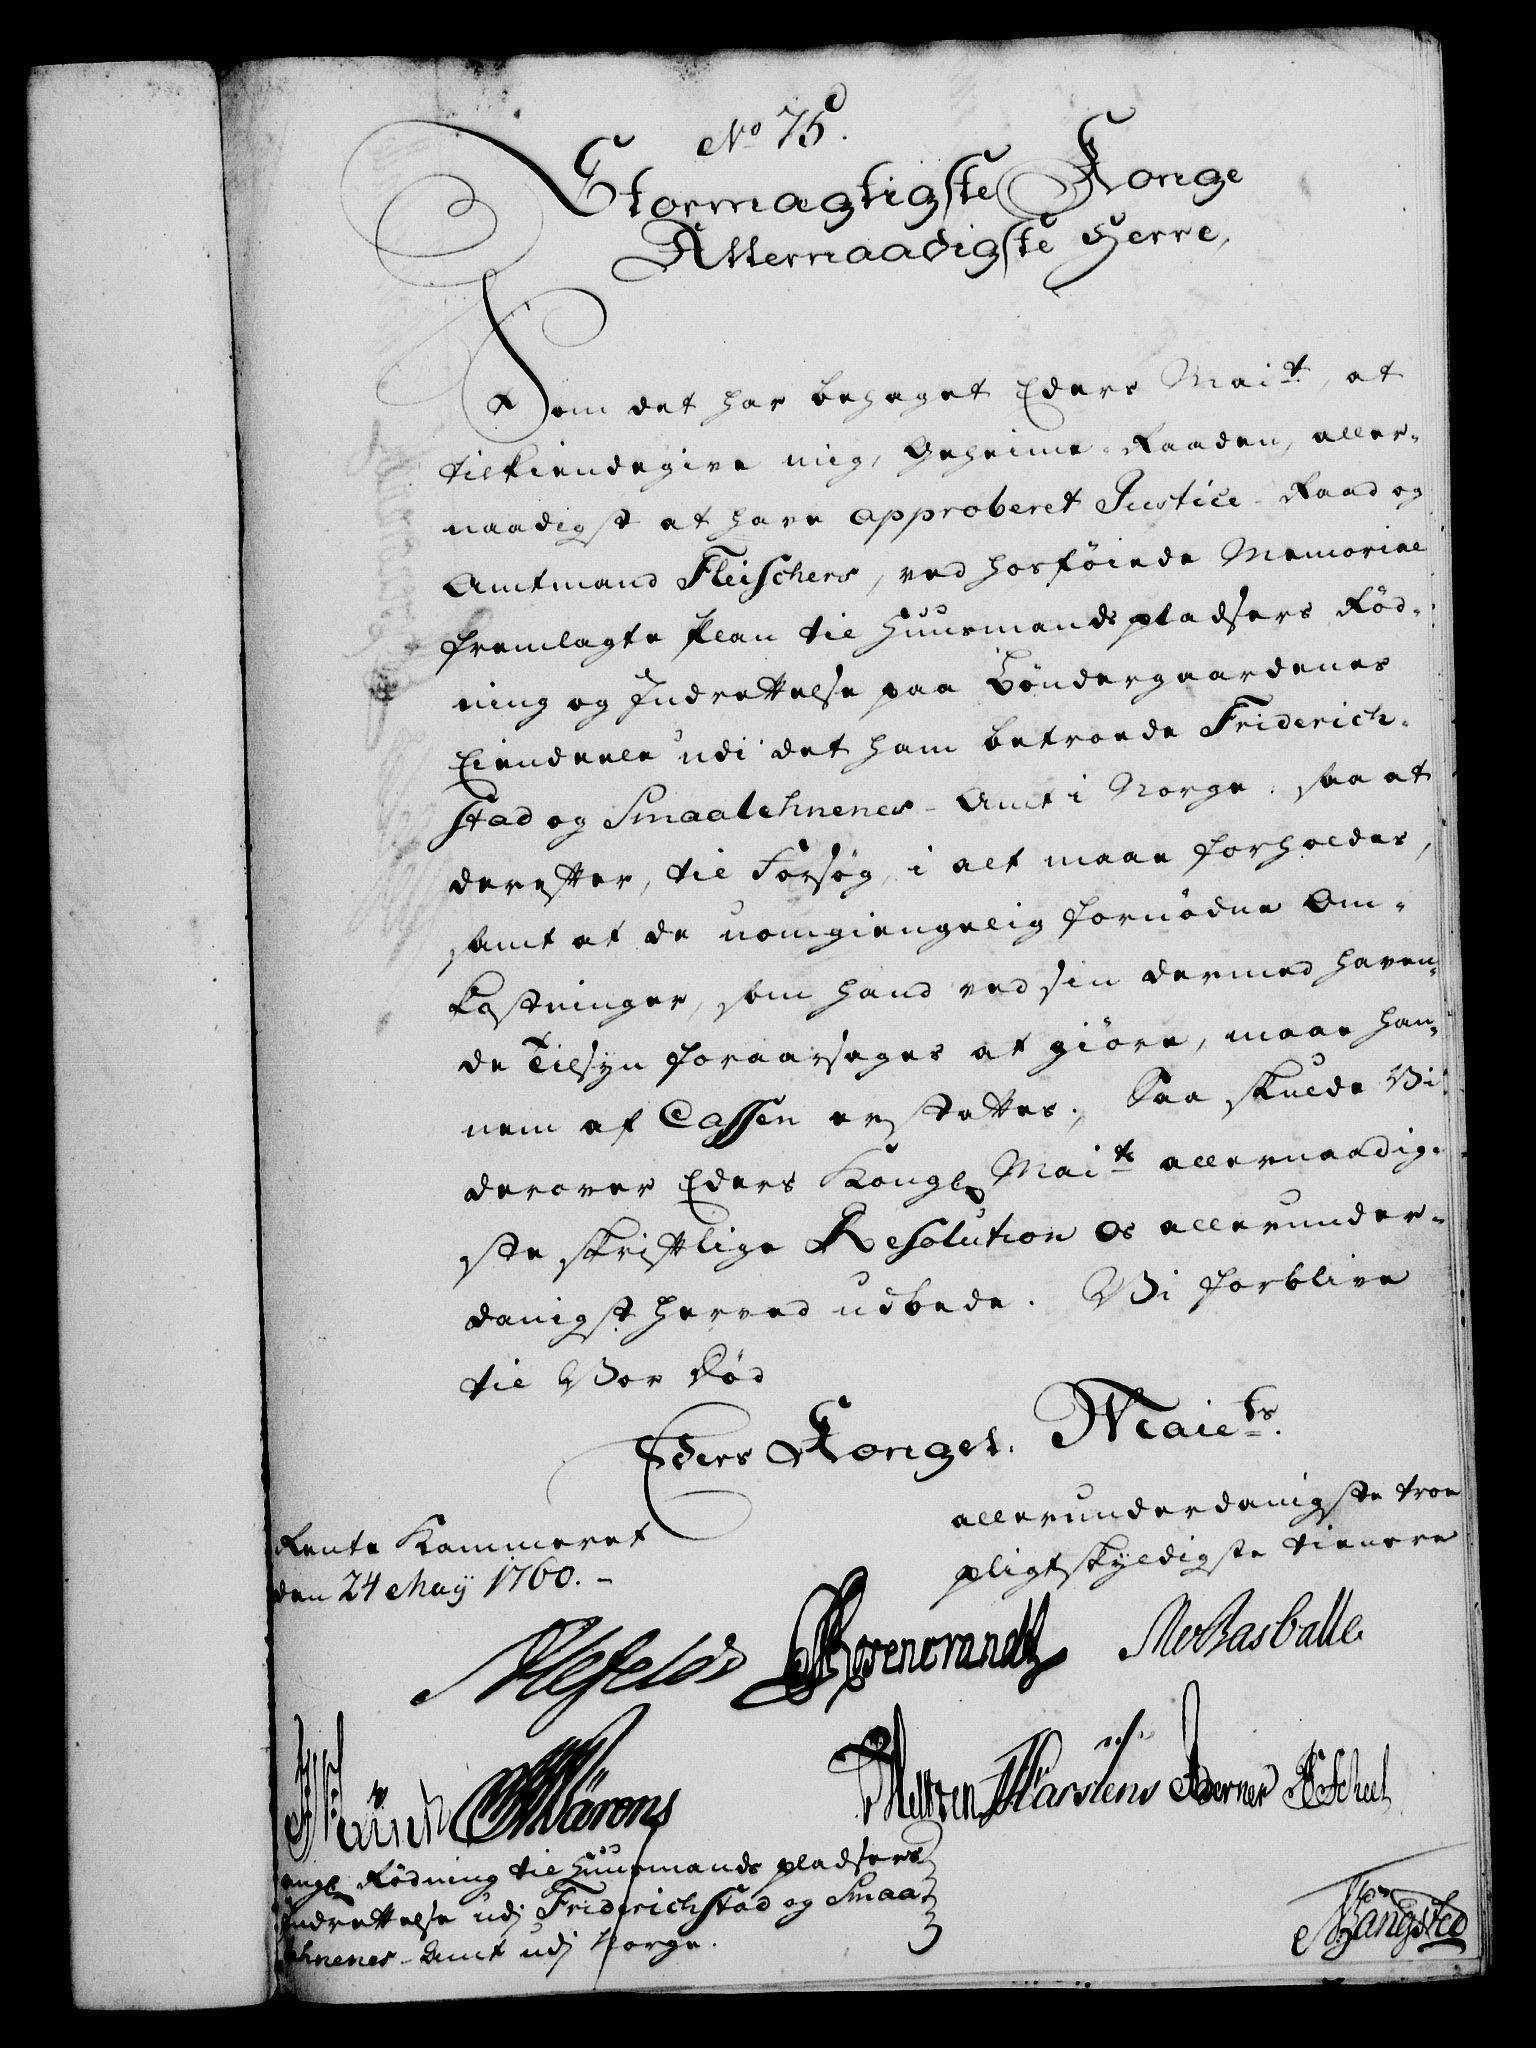 No 75.
Stormagtigste Konge
Allernaadigste Herre,
Som det har behaget Eders Mait. at
tilkiendegive mig, Geheime-Raaden, aller-
naadigst at have approberet Justice-Raad og
Amtmand Fleischers, ved hosföiede Memorial
fremlagte Plan til Huusmandspladsers Röd-
ning og Indrettelse paa Böndergaardenes
Eiendeele udi det ham betroede Friderich-
stad og Smaalehnenes-Amt i Norge, saa at
derefter, til Forsög, i alt maae forholdes,
samt at de uomgiengelig fornödne Om-
kostninger, som hand ved sin dermed haven-
de Tilsyn foraarsages at giöre, maae han-
nem af Cassen erstattes; Saa skulde Vi
derover Eders Kongl. Maits allernaadig-
ste skriftlige Resolution os allerunder-
danigst herved udbede. Vi forblive
til Vor Död
Eders Kongel. Maiets.
allerunderdanigste troe
pligtskyldigste tienere
Rente Kammeret
den 24 Maij 1760.
Ahlefeldt Rosencrandtz
Wärens Karstens Berner Scheel
angl. Rödning til Huusmands pladsers
Indrettelse udj Friderichstad og Smaa-
lehnenes-Amt udj Norge.
Bangsted